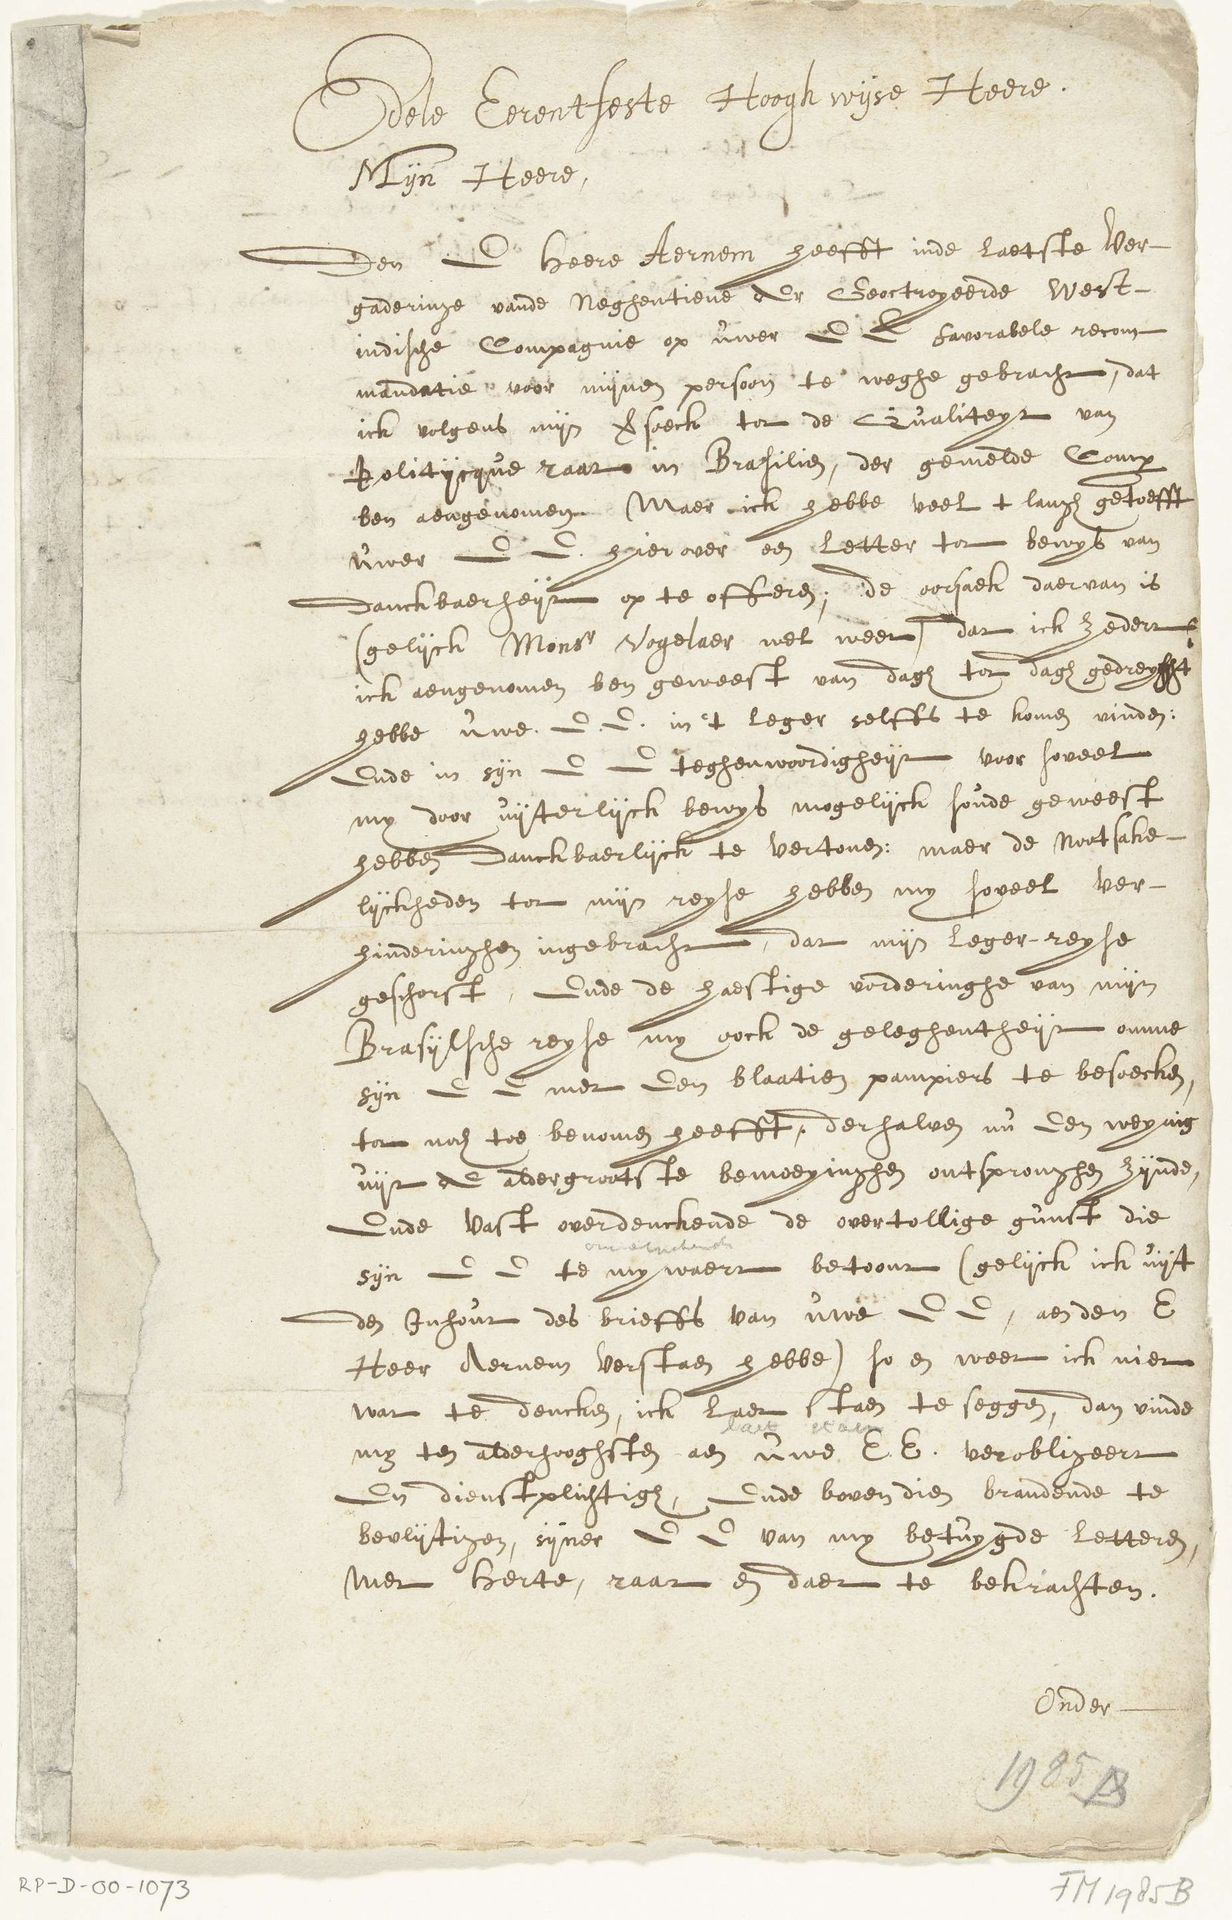 Edele Eerentfeste Hoogh wijse Heere.
Mijn Heere,
Den E Heere Aernem heefft inde laetste Ver-
gaderinge vande Neghentiene der Geoctroyeerde West-
indische Compagnie op uwer E E favorabele recom
mandatie voor mijnen persoon te weghe gebracht, dat
ick volgens mijn soeck tot de Qualiteyt van
Politijcque raat in Brasilien, der gemelde Comp
ben aengenomen. Maer ick hebbe veel t langh getoefft
uwer E E. hierover een letter tot bewys van
danckbaerheijt op te offeren; de oorsaek daervan is
(gelijck Monsr Vogelaer wel weet) dat ick zedert
ick aengenomen ben geweest van dagh tot dagh gedreyght
hebbe uwe. E. E. in 't leger selffs te komen vinden:
Ende in sijn E E teghenwoordigheijt voor soveel
my door uijterlijck bewys mogelijck soude geweest
hebben danckbaerlijck te vertonen: maer de Nootsake-
lijckheden tot mijn reyse hebben my soveel ver-
hinderinghen ingebracht, dat mijn leger-reyse
geschorst, Ende de haestige vorderinghe van mijn
Brasijlsche reyse my oock de geleghentheijt omme
sijn E E met Een blaatien pampiers te besoecken,
tot noch toe benomen heefft, derhalven nu Een weynig
uijt de aldergrootste bemoeyinghen ontspronghen zijnde,
Ende vast overdenckende de overtollige gunst die
sijn E E te mywaert betoont (gelijck ick uijt
den Inhout des brieffs van uwe E E, aenden E
Heer Aernem verstaen hebbe) so en weet ick niet
wat te dencken, ick laet staen te seggen, dan vinde
laet staen
my ten alderhooghsten aen uwe E E. verobligeert
En dienstplichtigh, Ende boven dien brandende te
bevlijtigen, sijner E E van my betuygde letteren,
Met Herte, raat en daet te bekrachten.
Onder
1985 B
RP-D-00-1073
FM 1985B